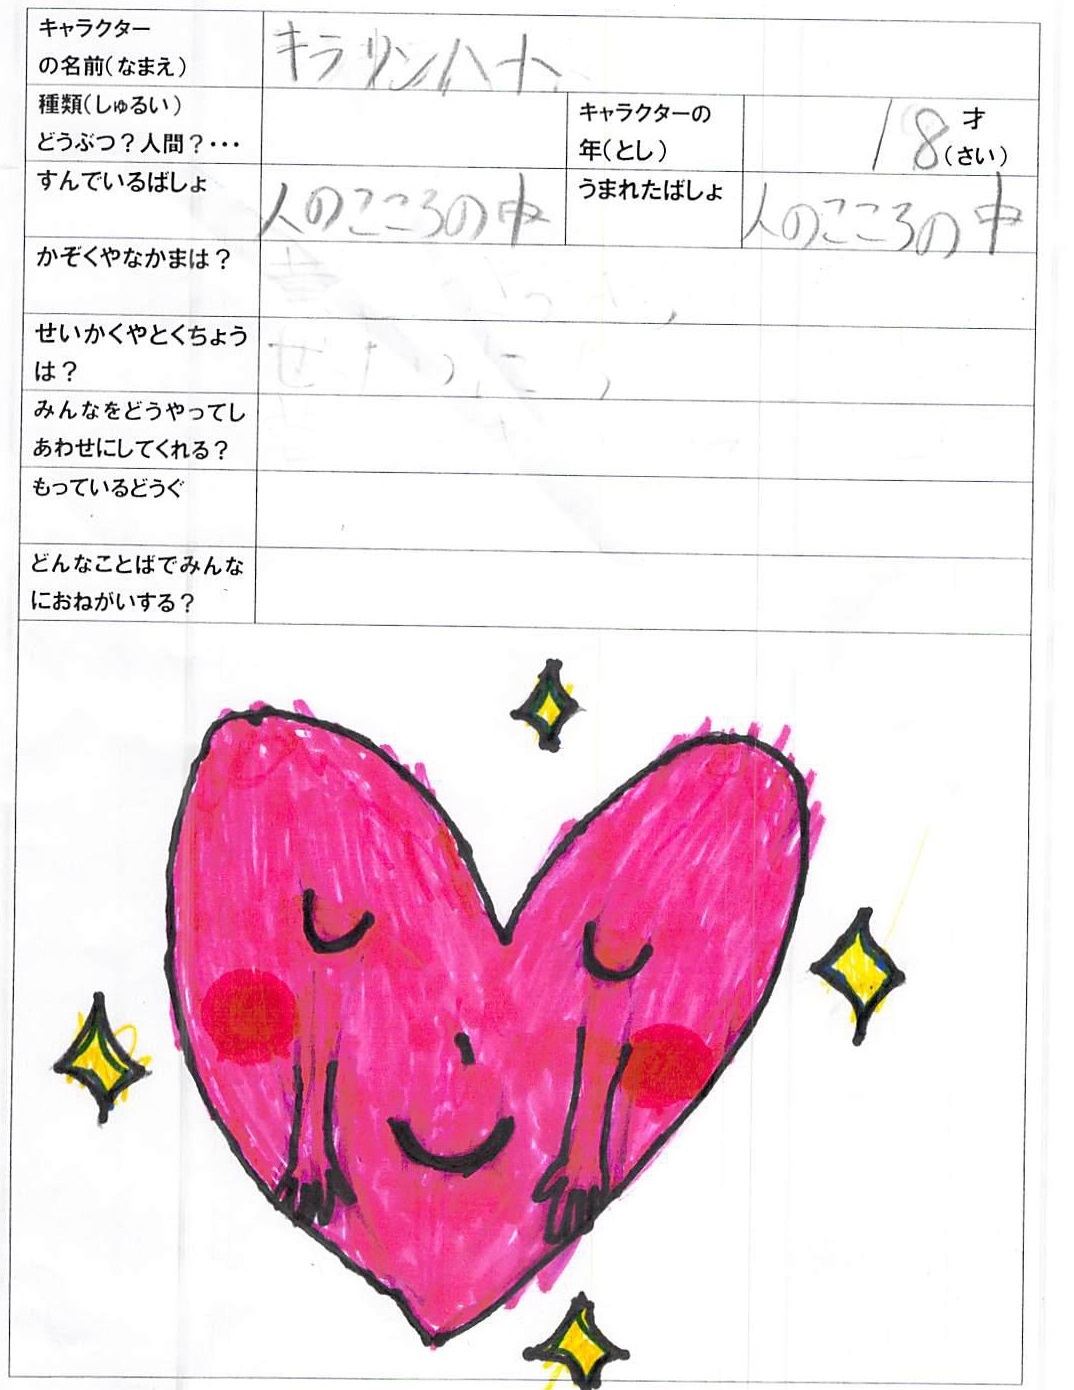 キャラクター
の名前(なまえ)
キラリンハート
種類(しゅるい)
どうぶつ?人間?・・・
キャラクターの
年(とし)
18才
(さい)
すんでいるばしょ
人のこころの中
うまれたばしょ
人のこころの中
かぞくやなかまは?
せいかくやとくちょう
は?
みんなをどうやってし
あわせにしてくれる?
もっているどうぐ
どんなことばでみんな
におねがいする?